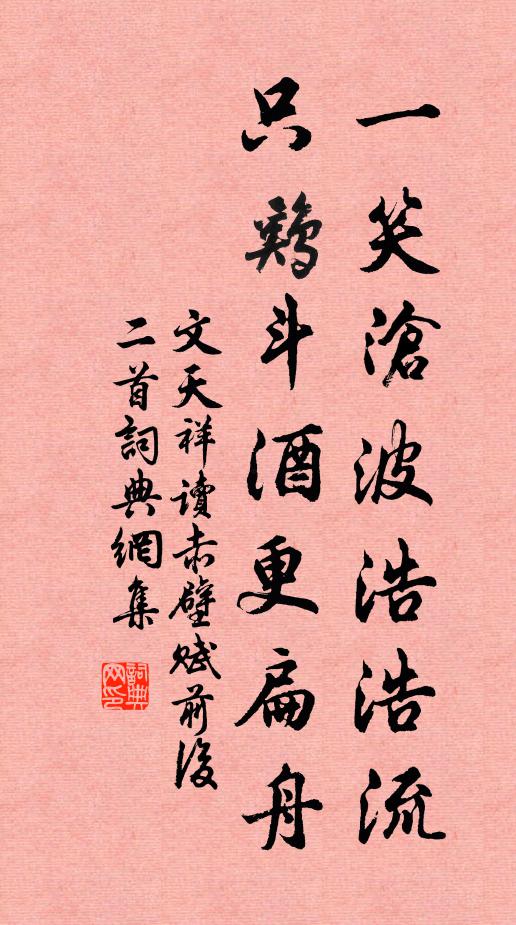 一笑滄波浩浩流
只鷄斗酒更扁舟
文天祥讀赤壁賦前後
二首詞典網集
詞典
网印